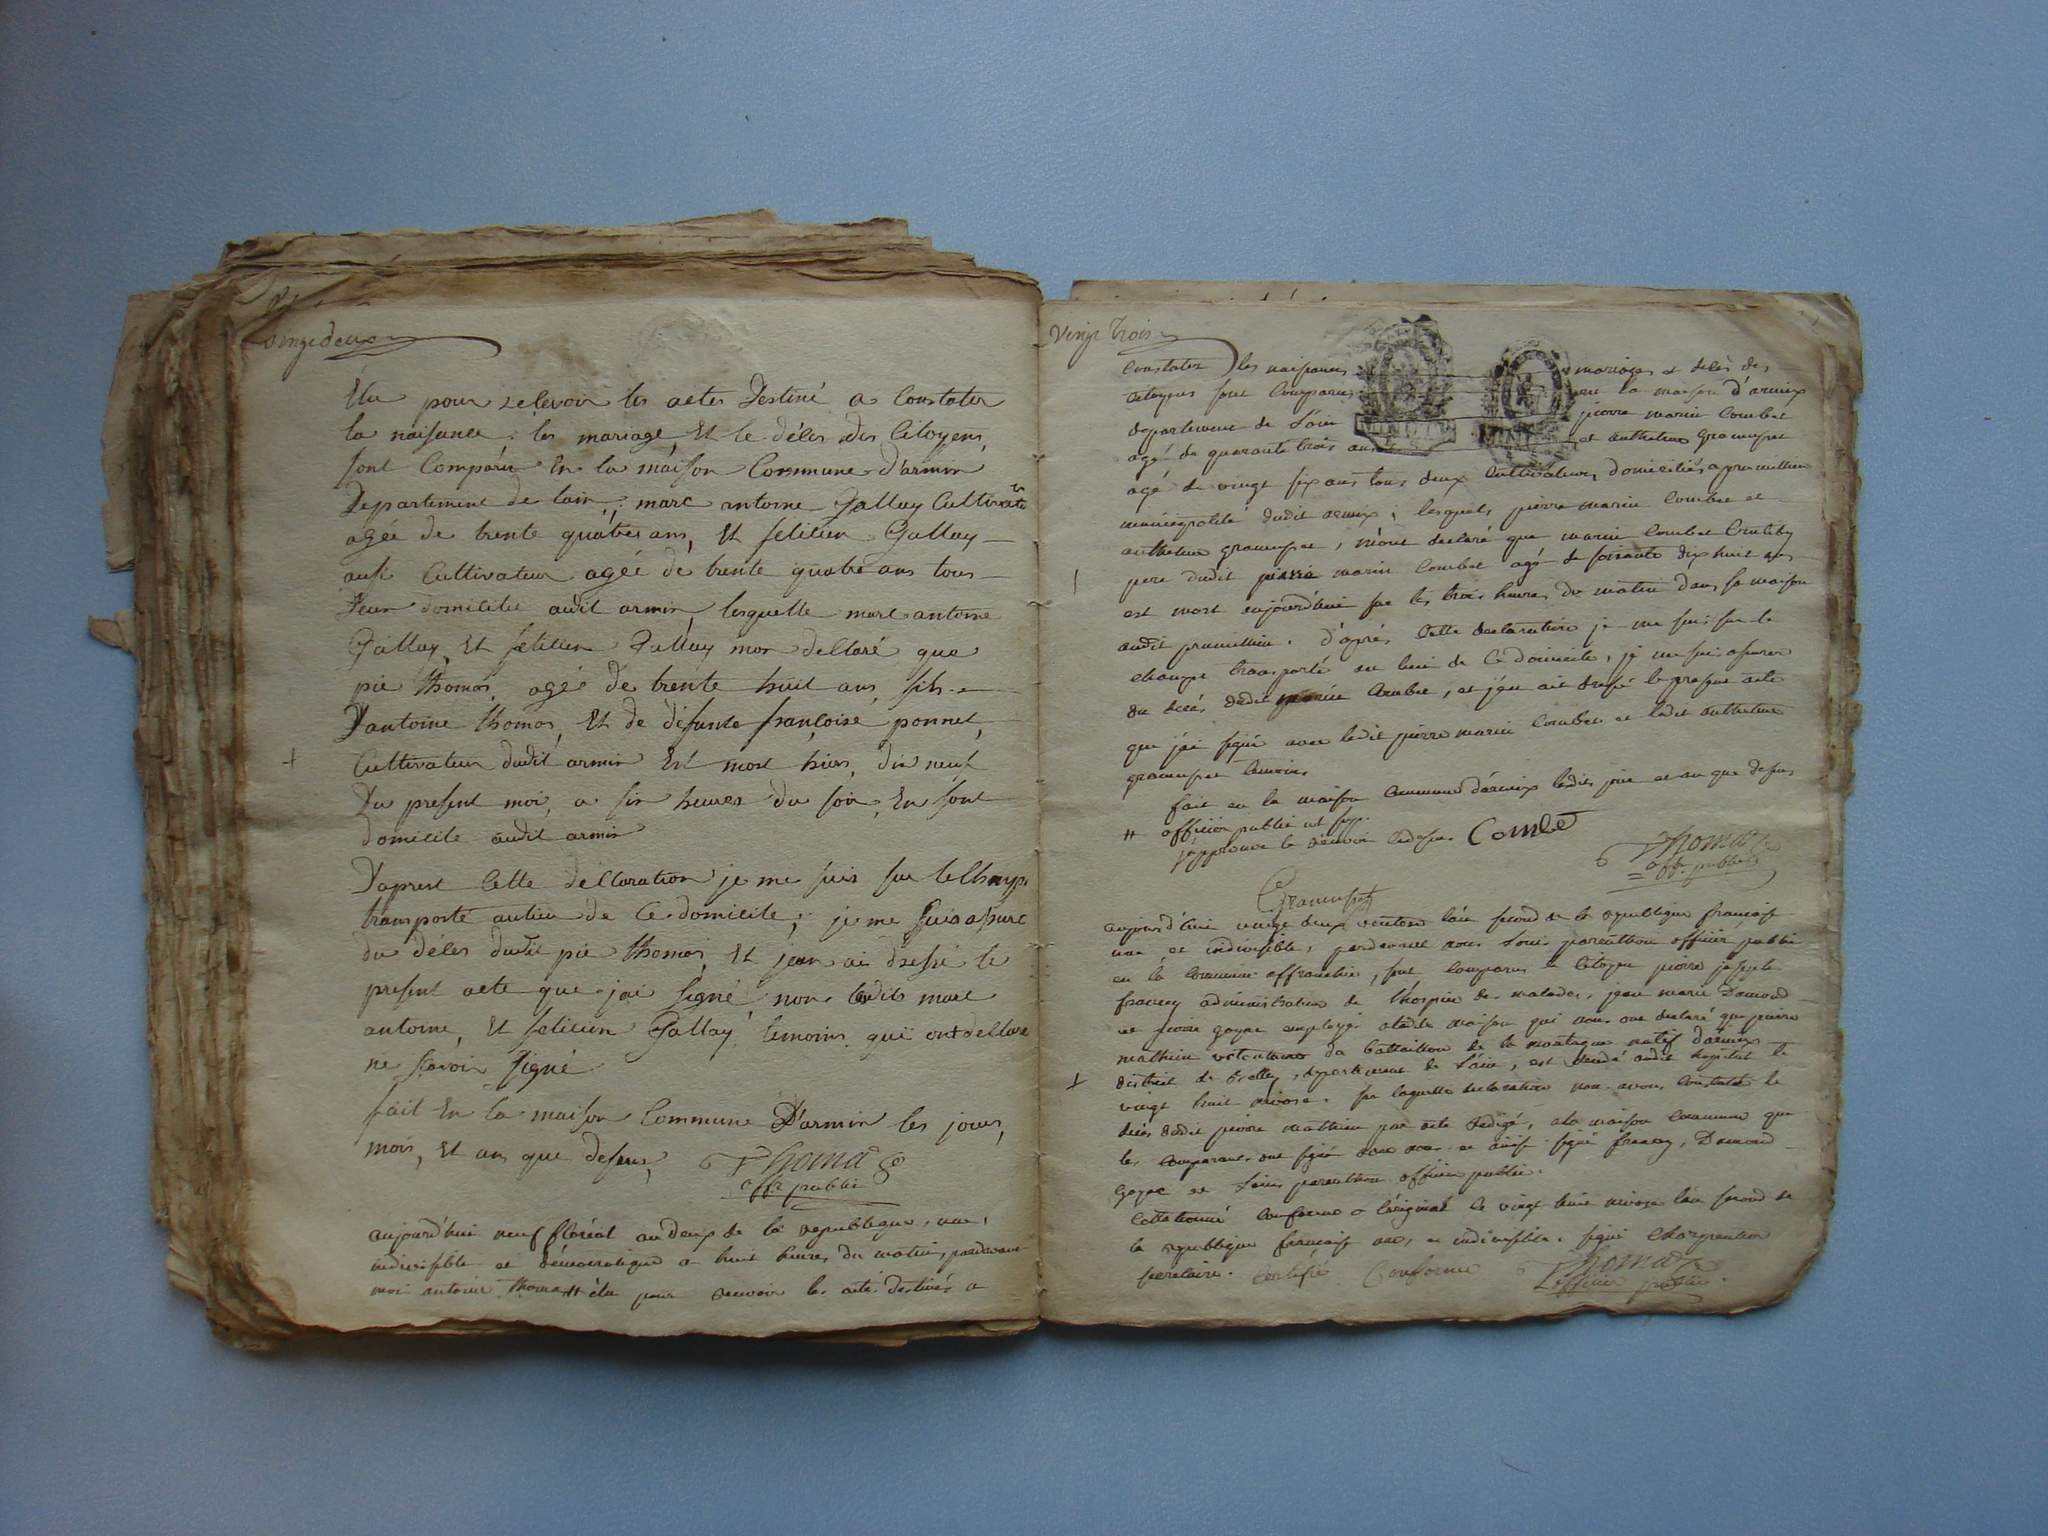 vingt deux
Élu pour recevoir les actes Destiné a Constater
la naisance, les mariage Et le déles des Citoyens,
sont Comparu En la maison Commune d'armin
Departement de lain, marc antoine Gallay Cultivateur
agée de trente quatre ans, Et felicien Gallay
ausi Cultivateur agée de trente quatre ans tous
Deux domicilie audit armin, lesquelle marc antoine
Gallay, Et felicien Gallay mon dellaré que
pie thomas, agée de trente huit ans, fils
D'antoine thomas, Et de défunte françoise ponnet,
Cultivateur dudit armin Est mort hier, dix neuf
Du present moi, a six heures du soir, En sont
domicile audit armin
D'aprest Cette déllaration je me suis sur le Champ
transporté aulieu de Ce domicile, je me suis assuré
du déles dudit pie thomas, Et jean ai dressé le
present acte que jai signé, non ledits marc
antoine, Et felicien Gallay temoins qui ont dellare
ne savoir signé
fait En la maison Commune D'armin les jours,
mois, Et ans que desus, Thomas
offr public
aujourd'hui neuf floréal an deux de la republique, une,
indivisible et démocratique a huit heures du matin, pardevant
moi antoine thomas élu pour recevoir les actes destinés a
vingt trois
Constater les naisances mariages et délés des
Citoyens sont Comparus en la maison d'armix
departement de l'ain pierre marin Combet
agé de quarante trois ans et anthelme gramuset
agé de vingt six ans tous deux Cultivateurs, domiciliés a premillieu
municipalité dudit armix; lesquels pierre marin Combet et
anthelme gramuset, m'ont declaré que marin Combet
pere dudit pierre marin Combet agé de soixante dix huit ans
est mort aujourd'hui sur les trois heures du matin dans sa maison
audit premillieu. D'aprés Cette declaration je me suis sur le
champ transporté au lieu de Ce domicile, je me suis assurer
du décés dudit marin Combet, et j'en ait dressé le present acte
que j'ai signé avec ledit pierre marin Combet et ledit anthelme
gramuset temoins
fait en la maison Commune d'armix ledits jour et an que desus
officier public
j'approuve le Combet
Thomas
offr. public
Gramuset
aujourd'hui vingt deux ventose l'an second de la republique française
une et indivisible, pardevant nous Louis parenthou officier public
en la Commune affranchie, sont Comparus le Citoyen pierre joseph
francey administrateur de l'hospice des malades, jean marie Damond
et goyne employés a ladite maison qui nous ont declaré que pierre
mathieu volontaire du battaillon de la montagne natif d'armix
district de Belley, departement de l'ain, est decedé audit hopital le
vingt huit nivose. sur laquelle declaration nous avons Constaté le
décès dudit pierre mathieu par acte redigé, a la maison Commune que
les Comparants ont signé avec nous et ainsi signé francey, Damond
goyne et Louis parenthou officier public.
Collationné Conforme a l'original le vingt huit nivose l'an second de
la republique française une et indivisible. signé
secretaire. Certifié Conforme Thomas
officier public.